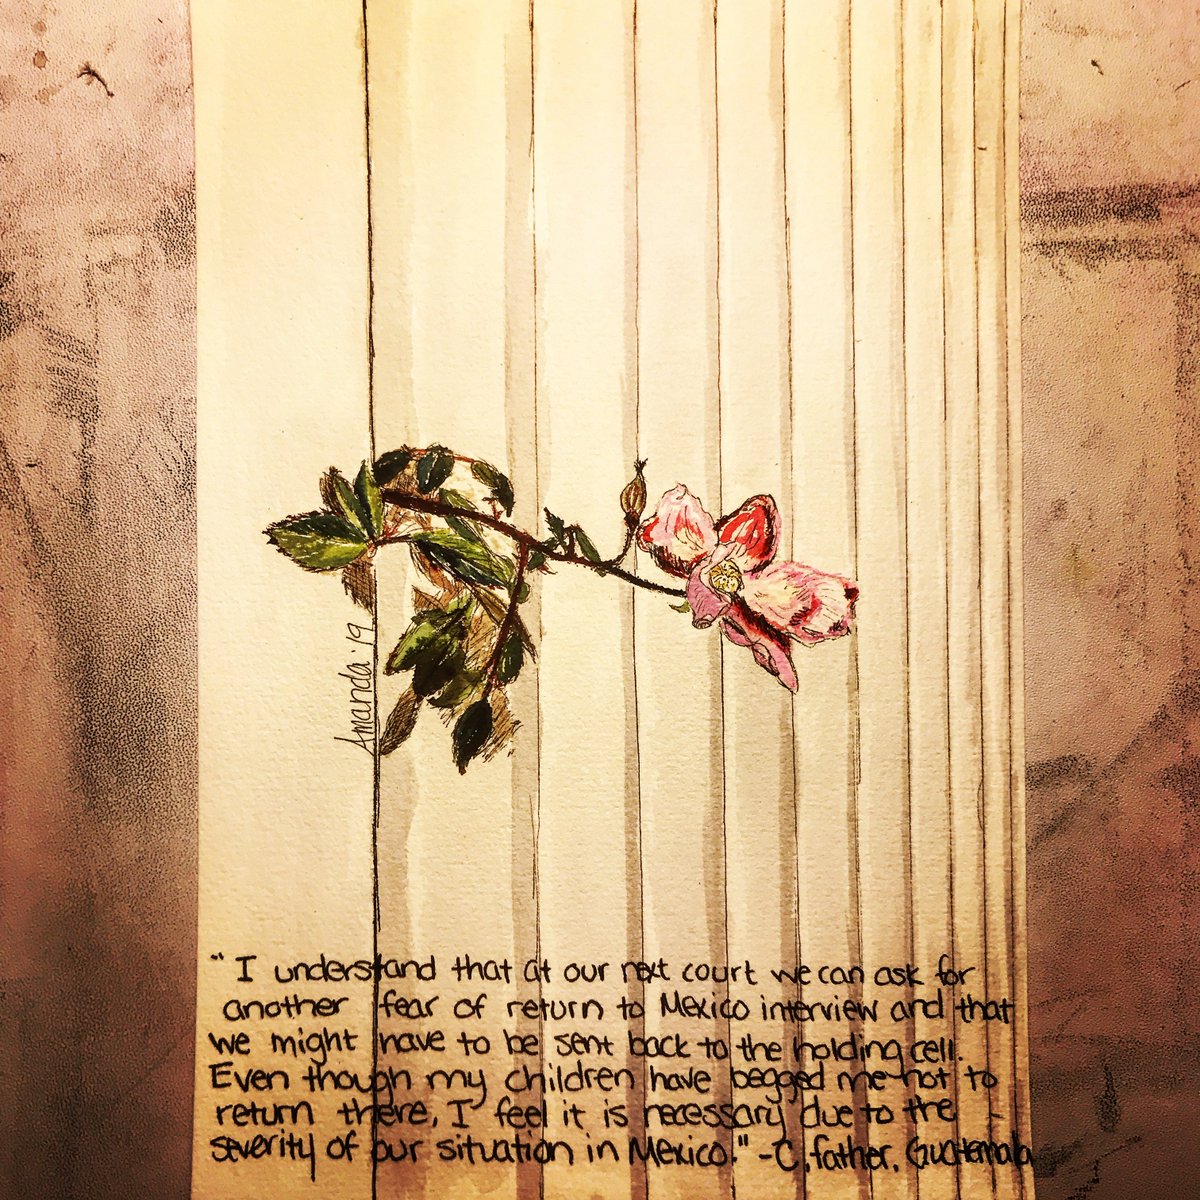 Amanda '19
"I understand that at our next court we can ask for
another fear of return to Mexico interview and that
we might have to be sent back to the holding cell.
Even though my children have begged me not to
return there, I feel it is necessary due to the
severity of our situation in Mexico." -C, father, Guatemala